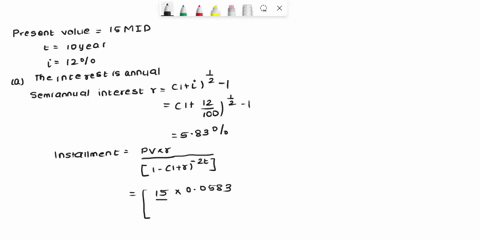 Present value = 15 MID
t = 10 year
i = 12%
(a) The interest is annual
Semiannual interest r = (1+i)^{1/2} - 1
= (1 + 12/100)^{1/2} - 1
= 5.83%
Installment = PV×r / [1-(1+r)^{-2t}]
= [ 15 × 0.0583